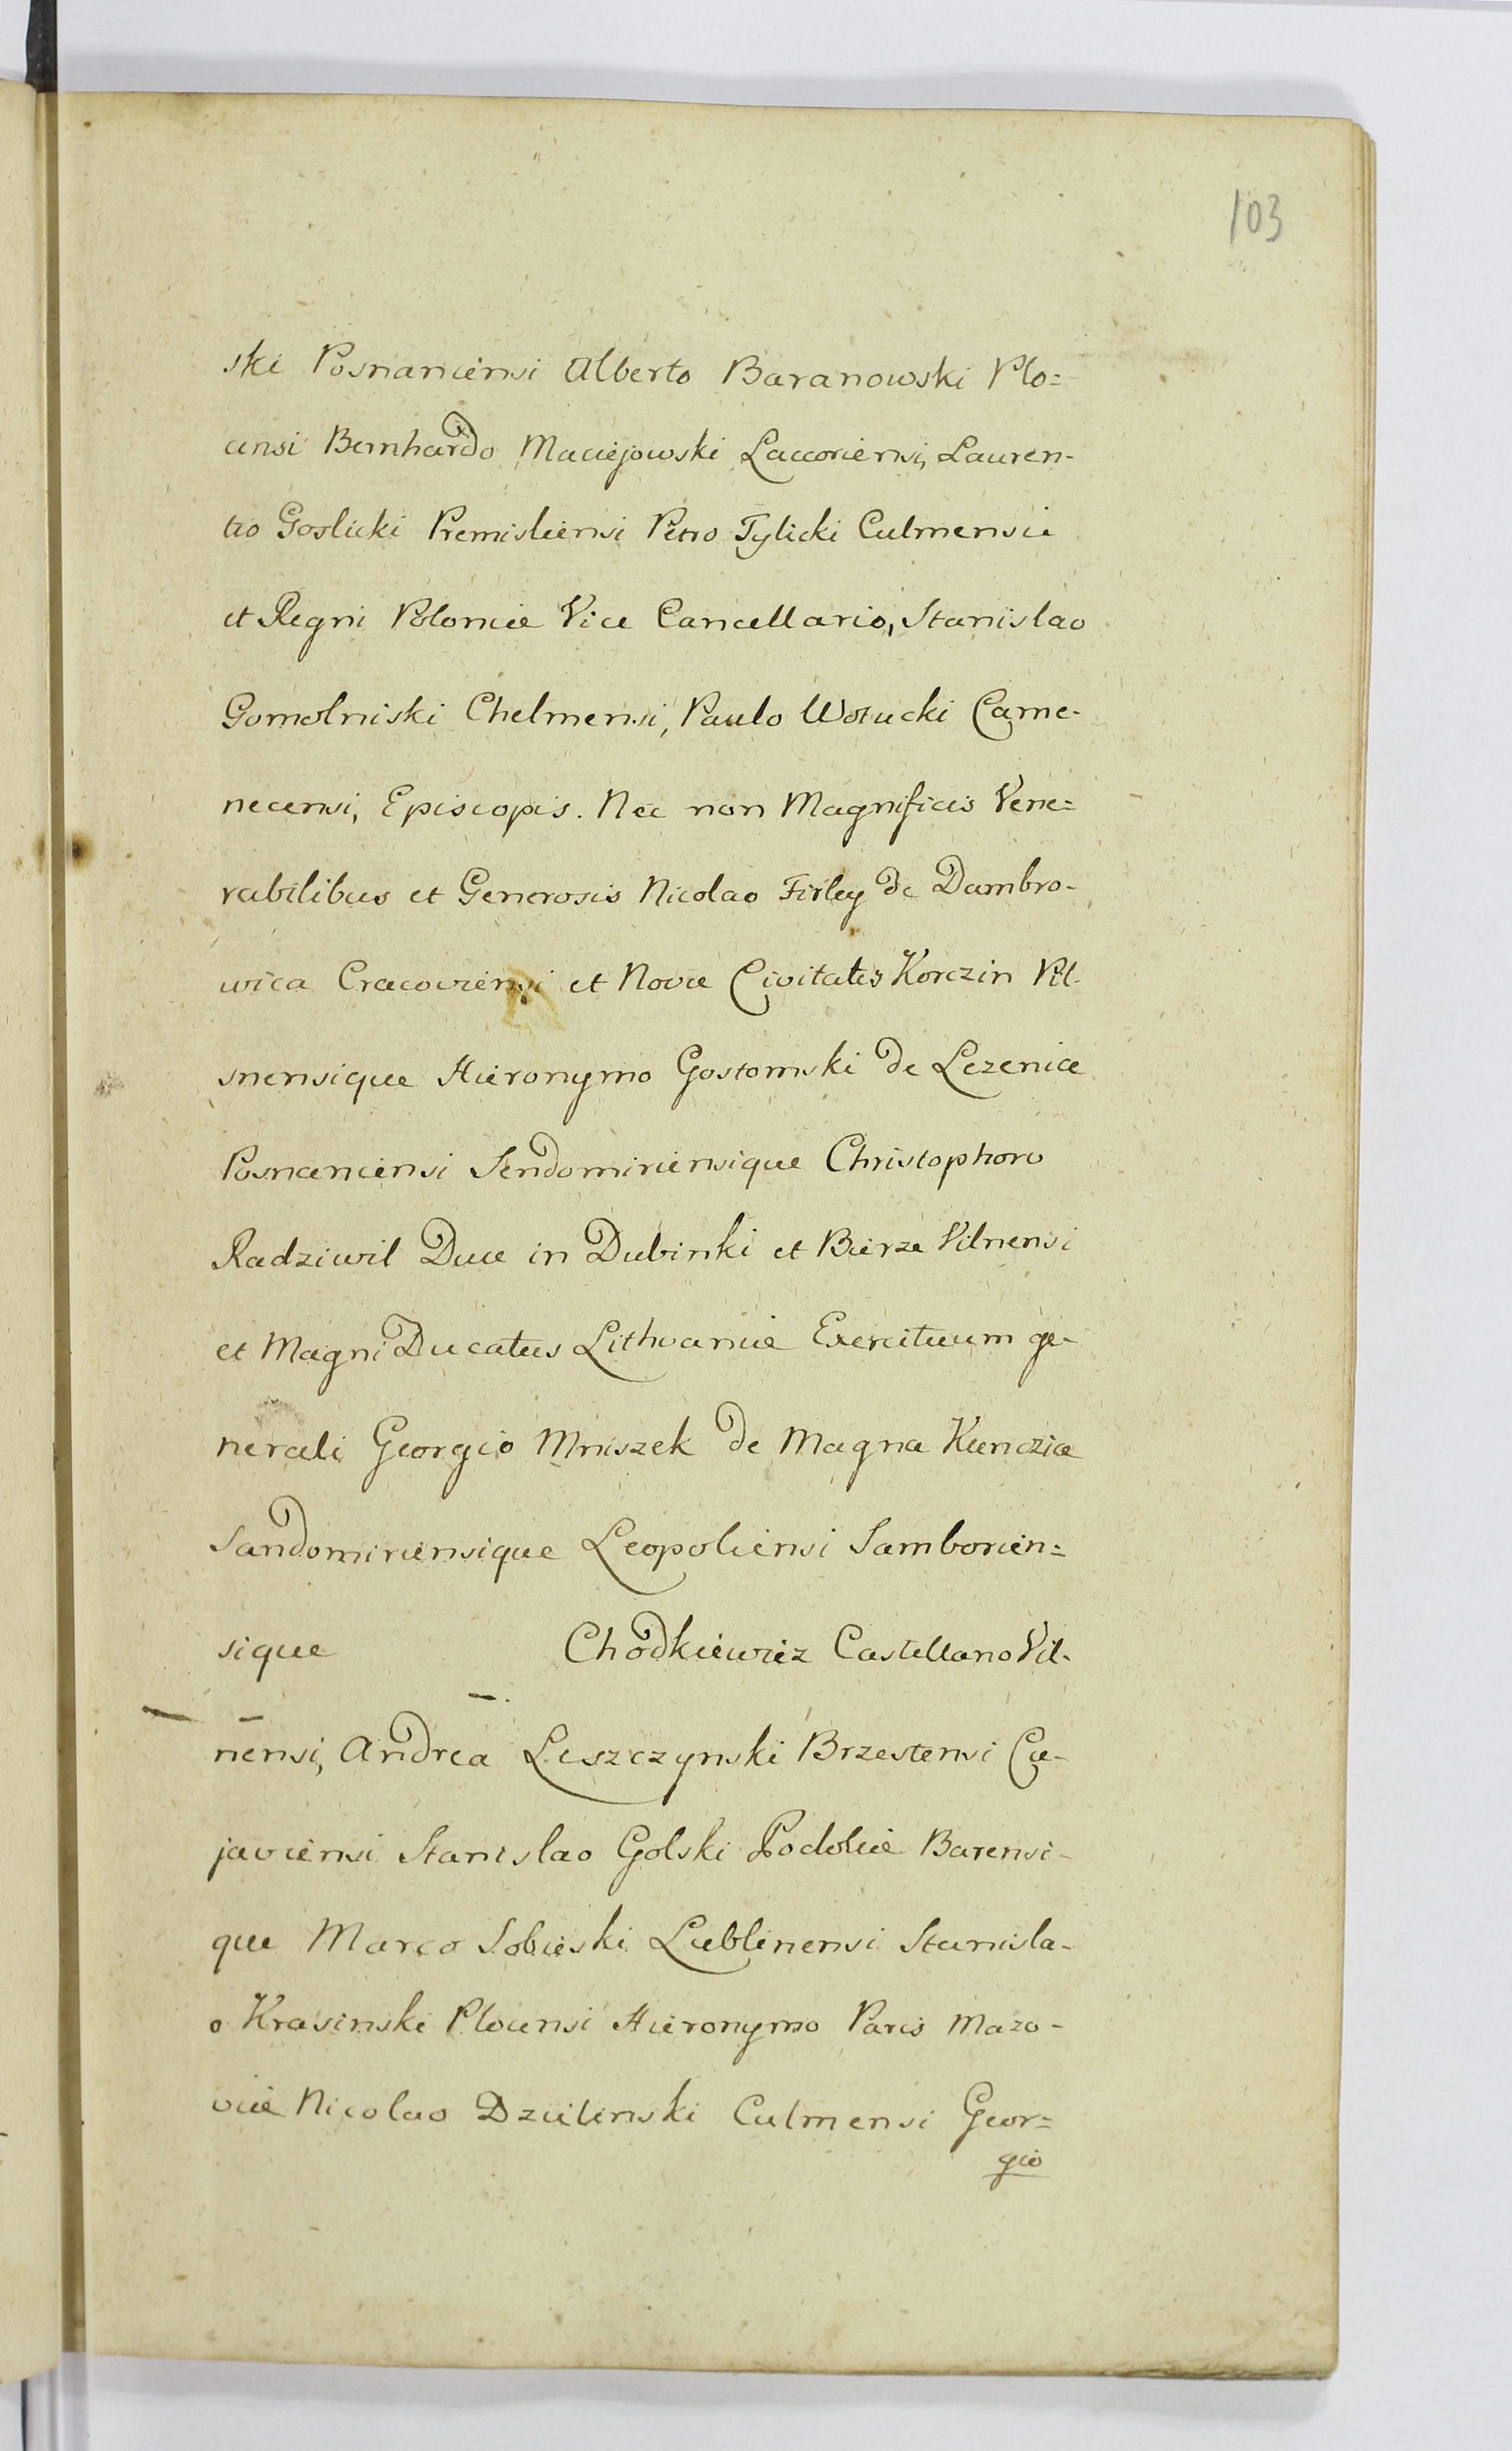 103
ski Posnaniensi Alberto Baranowski Plo=
censi Bernhardo Maciejowski Luceoriensi, Lauren-
tio Goslicki Premisliensi Petro Tylicki Culmensi
et Regni Poloniæ Vice Cancellario, Stanislao
Gomolniski Chelmensi, Paulo Wołucki Came-
necensi, Episcopis. Nec non Magnificis Vene=
rabilibus et Generosis Nicolao Firley de Dambro-
wica Cracoviensi et Novæ Civitatis Korczin Pil-
snensique Hieronymo Gostomski de Lezenice
Posnaniensi Sendomiriensique Christophoro
Radziwil Duce in Dubinki et Bierze Vilnensi
et Magni Ducatus Lithvaniæ Exercituum ge-
nerali Georgio Mniszek de Magna Kunczice
Sandomiriensique Leopoliensi Samborien=
sique Chodkiewicz Castellano Vil-
nensi, Andrea Leszczynski Brzestensi Cu-
javiensi Stanislao Golski Podoliæ Barensi-
que Marco Sobieski Lublinensi Stanisla-
o Krasinski Plocensi Hieronymo Paris Mazo-
viæ Nicolao Dzialinski Culmensi Geor=
gio